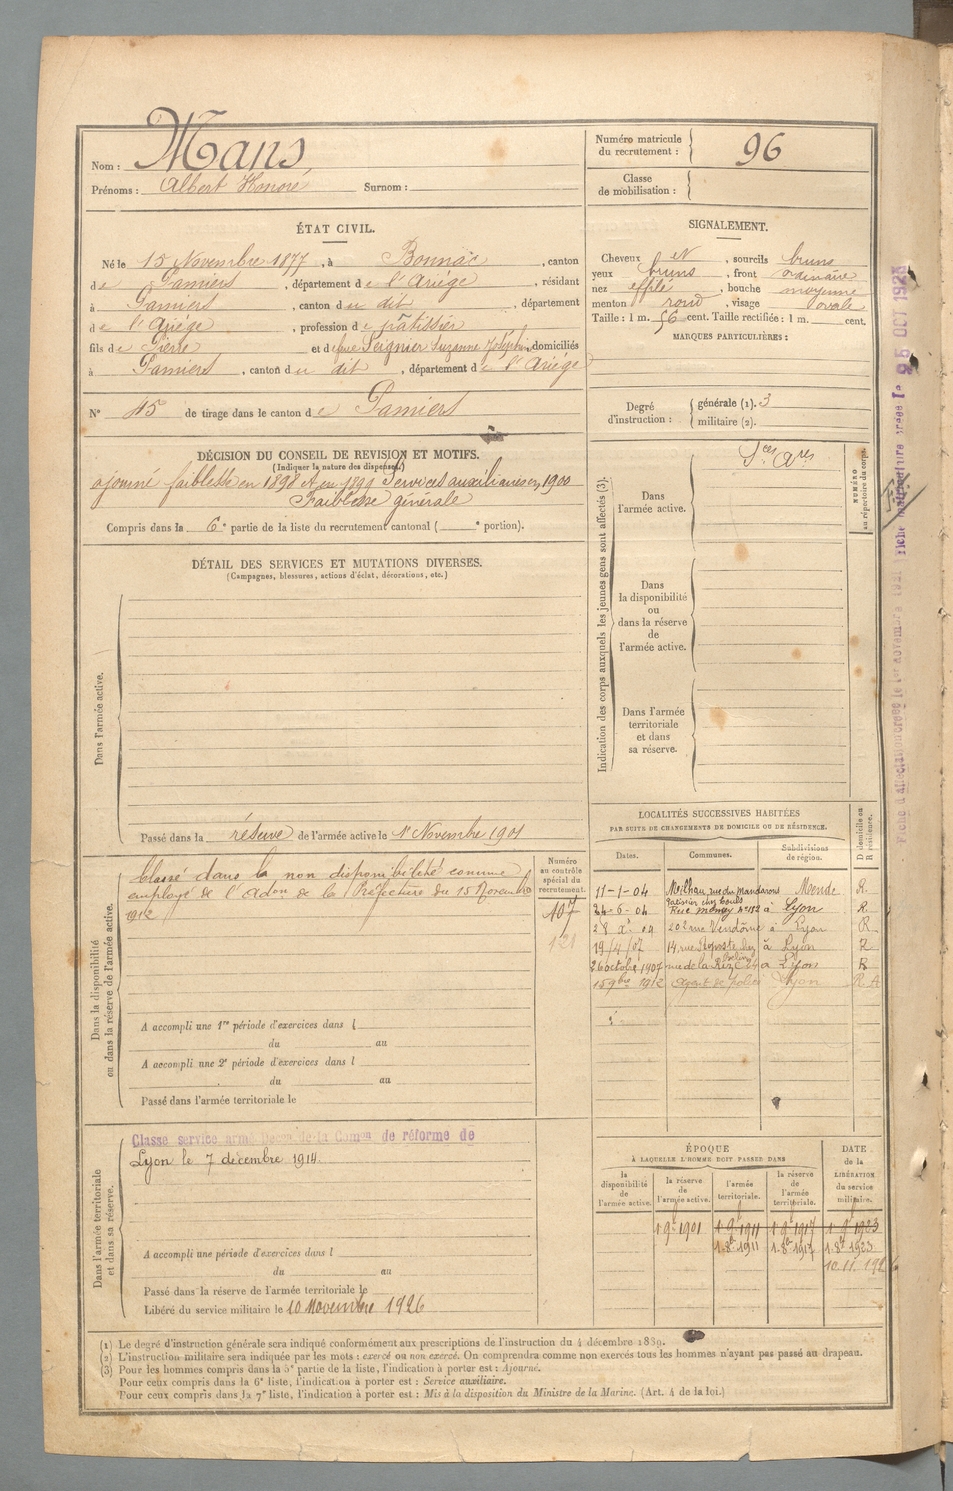 Nom : Mans
Prénoms : Albert Honoré Surnom :
Numéro matricule
du recrutement : 96
Classe
de mobilisation :
ÉTAT CIVIL.
Né le 15 Novembre 1877, à Bonnac, canton
de Pamiers, département de l'Ariége, résidant
à Pamiers, canton du dit, département
de l'Ariége, profession de pâtissier
fils de Pierre et de feue Seignier Suzanne Joséphine, domiciliés
à Pamiers, canton du dit, département de l'Ariége
N° 45 de tirage dans le canton de Pamiers
SIGNALEMENT.
Cheveux et, sourcils bruns
yeux bruns, front ordinaire
nez effilé, bouche moyenne
menton rond, visage ovale
Taille : 1 m. 56 cent. Taille rectifiée : 1 m. cent.
MARQUES PARTICULIÈRES :
Degré
d'instruction :
générale (1). 3
militaire (2).
DÉCISION DU CONSEIL DE REVISION ET MOTIFS.
(Indiquer la nature des dispenses.)
ajourné faiblesse en 1898 et en 1899 Services auxiliaires en 1900
Faiblesse générale
Compris dans la 6e partie de la liste du recrutement cantonal ( e portion).
DÉTAIL DES SERVICES ET MUTATIONS DIVERSES.
(Campagnes, blessures, actions d'éclat, décorations, etc.)
Dans l'armée active.
Passé dans la réserve de l'armée active le 1er Novembre 1901
Indication des corps auxquels les jeunes gens sont affectés (3).
Dans
l'armée active.
Sces Ares
NUMÉRO
au répertoire du corps.
Dans
la disponibilité
ou
dans la réserve
de
l'armée active.
Dans l'armée
territoriale
et dans
sa réserve.
Dans la disponibilité
ou dans la réserve de l'armée active.
Classé dans la non disponibilité comme
employé de l'Adon de la Préfecture du 15 Novembre
1912
Numéro
au contrôle
spécial du
recrutement.
107
121
A accompli une 1re période d'exercices dans l
du au
A accompli une 2e période d'exercices dans l
du au
Passé dans l'armée territoriale le
LOCALITÉS SUCCESSIVES HABITÉES
PAR SUITE DE CHANGEMENTS DE DOMICILE OU DE RÉSIDENCE.
Dates. Communes. Subdivisions
de région.
D domicile ou
R résidence.
11-1-04 Meilhau, rue du Mandarous Mende R.
24-6-04 Rue Moncey N° 152 à Lyon R
202 rue Vendôme à Lyon R
19/4/07 à Lyon R
26 octobre 1907 rue de la à Lyon R
15 9bre 1912 Agent de police Lyon R A
Dans l'armée territoriale
et dans sa réserve.
Classe service armé Décon de la Comon de réforme de
Lyon le 7 décembre 1914.
A accompli une période d'exercices dans l
du au
Passé dans la réserve de l'armée territoriale le
Libéré du service militaire le 10 Novembre 1926
ÉPOQUE
À LAQUELLE L'HOMME DOIT PASSER DANS
DATE
de la
LIBÉRATION
du service
militaire.
la
disponibilité
de
l'armée active.
la réserve
de
l'armée active.
l'armée
territoriale.
la réserve
de
l'armée
territoriale.
1 9e 1901 1 9e 1911 1 9e 1917 1 9e 1923
1.8e 1911 1.8e 1917 1.8e 1923
10.11.1926
(1) Le degré d'instruction générale sera indiqué conformément aux prescriptions de l'instruction du 4 décembre 1889.
(2) L'instruction militaire sera indiquée par les mots : exercé ou non exercé. On comprendra comme non exercés tous les hommes n'ayant pas passé au drapeau.
(3) Pour les hommes compris dans la 5e partie de la liste, l'indication à porter est : Ajourné.
Pour ceux compris dans la 6e liste, l'indication à porter est : Service auxiliaire.
Pour ceux compris dans la 7e liste, l'indication à porter est : Mis à la disposition du Ministre de la Marine. (Art. 4 de la loi.)
Fiche d'affectation créée le 1er Novembre
Fiche matriculaire créée le 25 OCT 1923